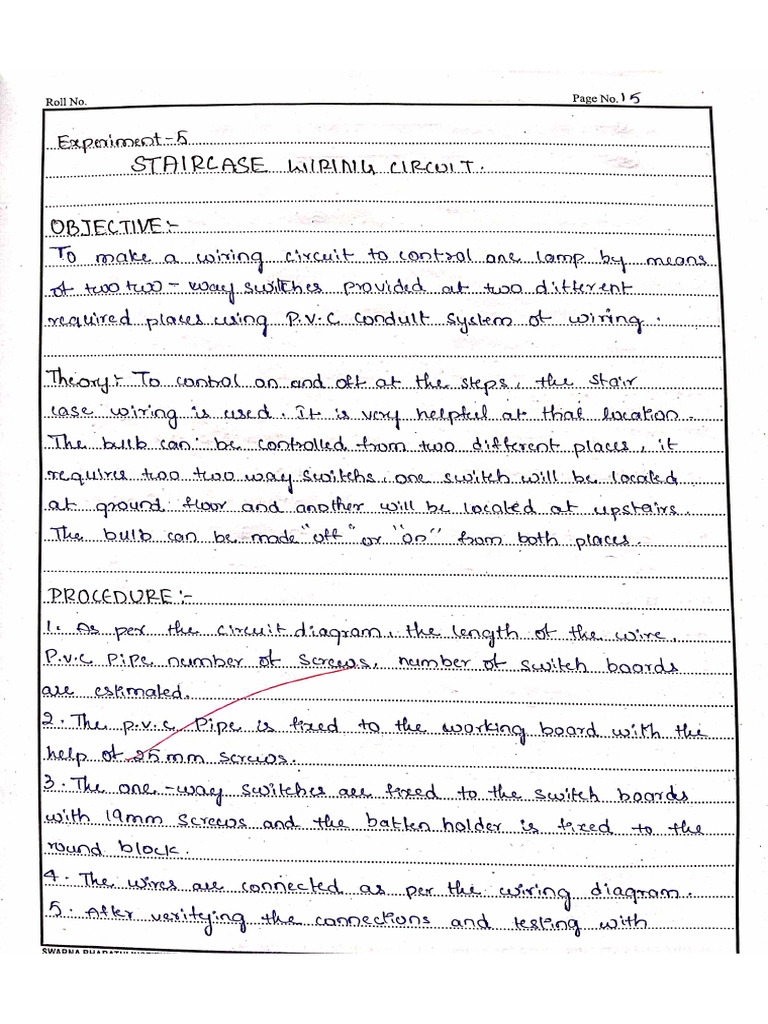 Roll No.
Page No. 15
Experiment-5
STAIRCASE WIRING CIRCUIT.
OBJECTIVE:-
To make a wiring circuit to control one lamp by means
of two two-way switches provided at two different
required places using P.V.C conduit system of wiring.
Theory:- To control on and off at the steps, the stair
case wiring is used. It is very helpful at that location.
The bulb can be controlled from two different places, it
requires two two way switchs, one switch will be located
at ground floor and another will be located at upstairs.
The bulb can be made "off" or "on" from both places.
PROCEDURE:-
1. As per the circuit diagram, the length of the wire,
P.V.C Pipe number of screws, number of switch boards
are estimated.
2. The p.v.c Pipe is fixed to the working board with the
help of 25mm screws.
3. The one-way switches are fixed to the switch boards
with 19mm screws and the batten holder is fixed to the
round block.
4. The wires are connected as per the wiring diagram.
5. After verifying the connections and testing with